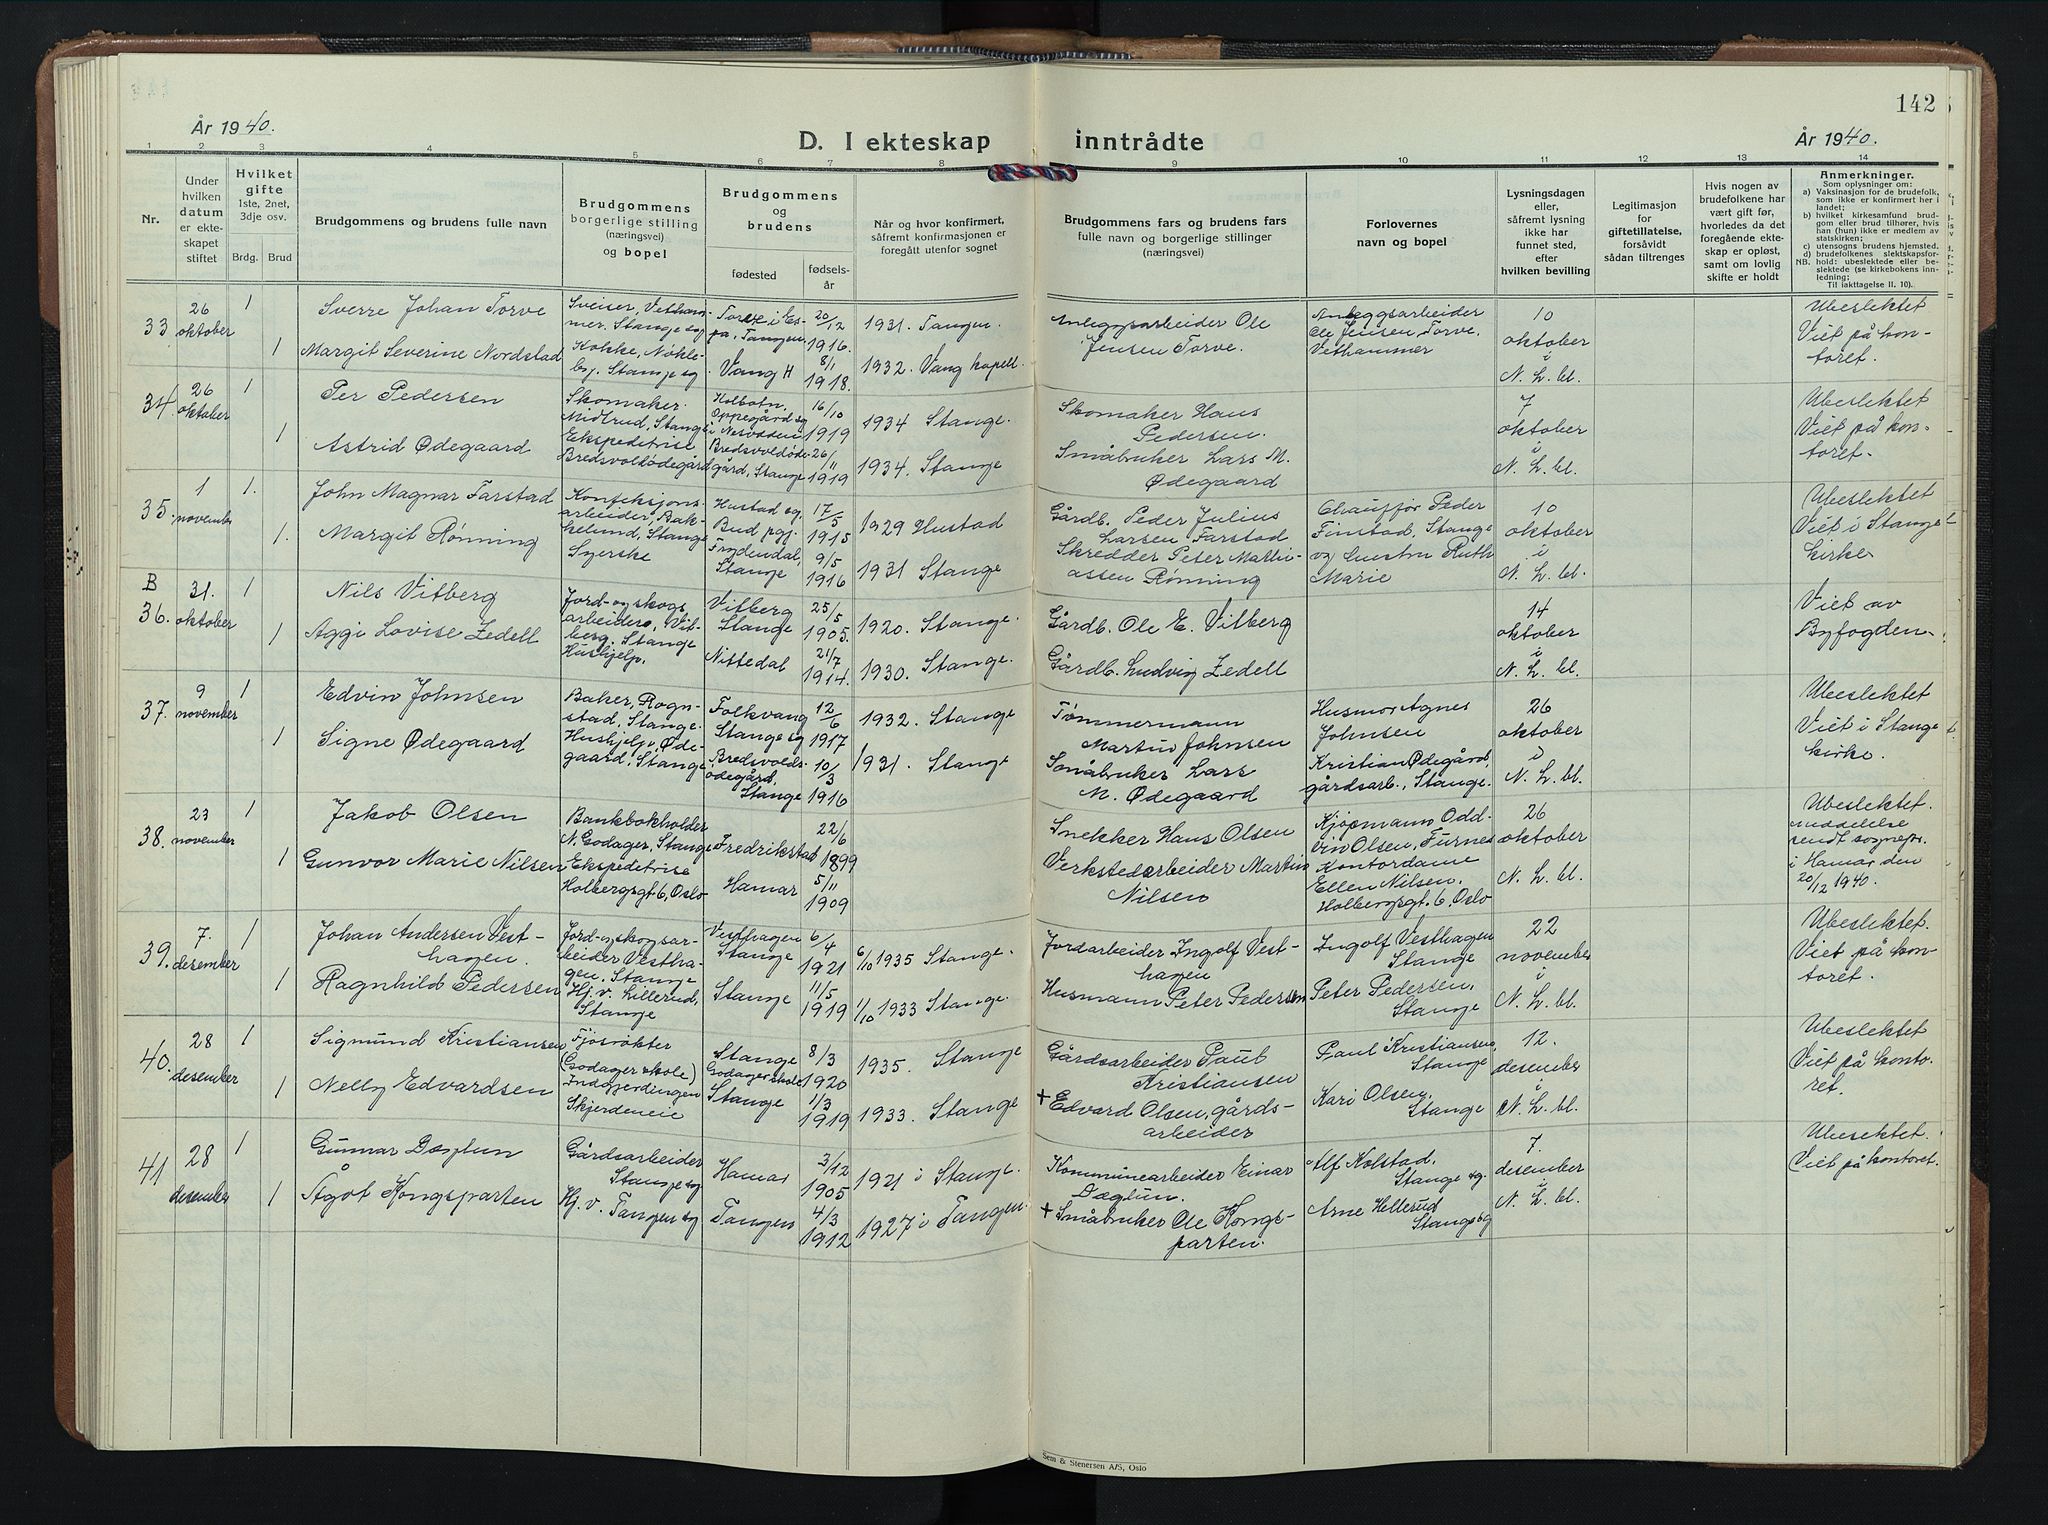 142
År 1940.
D. I ekteskap inntrådte
År 1940.
1 2 3 4 5 6 7 8 9 10 11 12 13 14
Nr.
Under hvilken datum er ekte-skapet stiftet
Hvilket gifte 1ste, 2net, 3dje osv.
Brdg. Brud
Brudgommens og brudens fulle navn
Brudgommens borgerlige stilling (næringsvei) og bopel
Brudgommens og brudens
fødested
fødsels-år
Når og hvor konfirmert, såfremt konfirmasjonen er foregått utenfor sognet
Brudgommens fars og brudens fars fulle navn og borgerlige stillinger (næringsvei)
Forlovernes navn og bopel
Lysningsdagen eller, såfremt lysning ikke har funnet sted, efter hvilken bevilling
Legitimasjon for giftetillatelse, forsåvidt sådan tiltrenges
Hvis nogen av brudefolkene har vært gift før, hvorledes da det foregående ekte-skap er opløst, samt om lovlig skifte er holdt
Anmerkninger.
Som oplysninger om:
a) Vaksinasjon for de brudefolk, som ikke er konfirmert her i landet;
b) hvilket kirkesamfund brud-gom eller brud tilhører, hvis han (hun) ikke er medlem av statskirken;
c) utensogns brudens hjemsted.
d) brudefolkenes slektskapsfor-hold: ubeslektede eller be-slektede (se kirkebokens inn-ledning;
NB. Til iakttagelse II. 10).
33 26 oktober 1 Sverre Johan Torve
Sveiser, Vethammer. Stange sg
Torve i Espa, Tangen 20/12 1916. 1931. Tangen.
Anleggsarbeider Ole Jensen Torve.
Anleggsarbeider Ole Jensen Torve, Vethammer
10 oktober i N. H. bl.
Ubeslektet Viet på kontoret.
1 Margit Severine Nordstad
Kokke, Nøkleby. Stange sg
Vang H 8/1 1918. 1932. Vang kapell.
34. 26 oktober 1 Per Pedersen
Skomaker. Midtrud, Stange
Kolbotn, Oppegård sg i Nesodden 16/10 1919 1934 Stange.
Skomaker Hans Pedersen.
7 oktober i N. H. bl.
Ubeslektet Viet på kontoret.
1 Astrid Ødegaard
Ekspeditrise Bredsvoldødegård
Bredsvoldødegård, Stange 26/11 1919 1934. Stange
Småbruker Lars M. Ødegaard
35. 1 november 1. John Magnar Farstad
Konfeksjonsarbeider, Bakkelund, Stange
Hustad sg, Bud pgj. 17/5 1915 1929 Hustad
Gårdb. Peder Julius Larsen Farstad
Chauffør Peder Finstad, Stange og hustru Ruth Marie
10 oktober i N. H. bl.
Ubeslektet Viet i Stange kirke
1. Margit Rønning
Syerske
Frydendal, Stange 9/5 1916 1931 Stange
Skredder Peter Martiassen Rønning
B
36. 31. oktober 1 Nils Vitberg
Jord- og skogsarbeider, Vitberg. Stange
Vitberg Stange 25/5 1905. 1920. Stange.
Gårdb. Ole E. Vitberg
14 oktober i N. H. bl.
Viet av Byfogden.
1 Aggi Lovise Zedell
Hushjelp.
Nittedal 21/7 1914. 1930. Stange.
Gårdb. Ludvig Zedell
37. 9 november 1 Edvin Johnsen
Baker, Rognstad, Stange.
Folkvang Stange sg 12/6 1917 1932. Stange
Tømmermann Martin Johnsen
Husmor Agnes Johnsen
26 oktober i N. H. bl.
Ubeslektet Viet i Stange kirke.
1 Signe Ødegaard
Hushjelp, Ødegaard, Stange
Bredsvoldsødegård Stange 10/3 1916 1931. Stange
Småbruker Lars M. Ødegaard
Kristian Ødegård, gårdsarb., Stange.
38. 23 november 1 Jakob Olsen
Bankbokholder N. Godager, Stange
Fredrikstad 22/6 1899
Snekker Hans Olsen
Kjøpmann Oddvin Olsen, Furnes
26 oktober N. H. bl.
Ubeslektet. Meddelelse sendt sognepr. i Hamar den 20/12 1940.
1 Gunvor Marie Nilsen
Ekspeditrise Holbergsgt. 6, Oslo
Hamar 5/11 1909
Verkstedarbeider Martin Nilsen
Kontordame Ellen Nilsen. Holbergsgt. 6, Oslo
39. 7. desember 1 Johan Andersen Vesthagen.
Jord- og skogsarbeider Vesthagen. Stange
Vesthagen Stange 6/4 1921 6/10 1935 Stange.
Jordarbeider Ingolf Vesthagen
Ingolf Vesthagen Stange
22 november i N. H. bl.
Ubeslektet. Viet på kontoret.
1 Ragnhild Pedersen
Hj. v. Lillerud, Stange
Stange 11/5 1919 1/10 1933 Stange.
Husmann Peter Pedersen
Peter Pedersen, Stange
40. 28 desember 1 Sigmund Kristiansen
Fjøsrøkter (Godager skole)
Stange Godager skole 8/3 1920 1935. Stange
Gårdsarbeider Paul Kristiansen
Paul Kristiansen, Stange
12. desember i N. H. bl.
Ubeslektet Viet på kontoret.
1 Nelly Edvardsen
Indgjerdingen Skjerdeneie
Stange 1/3 1919 1933. Stange
+ Edvard Olsen, gårdsarbeider
Kari Olsen, Stange
41 28 desember 1 Gunnar Døglun
Gårdsarbeider Stange sg
Hamar 3/12 1905 1921 i Stange.
Kommunearbeider Einar Døglun.
Alf Kolstad, Stange sg.
7. desember i N. H. bl.
Ubeslektet. Viet på kontoret.
1 Ågot Kongsparten
Hj. v. Tangen sg
Tangen 4/3 1912 1927 i Tangen.
+ Småbruker Ole Kongsparten.
Arne Hellerud Stange sg
Sem & Stenersen A/S, Oslo